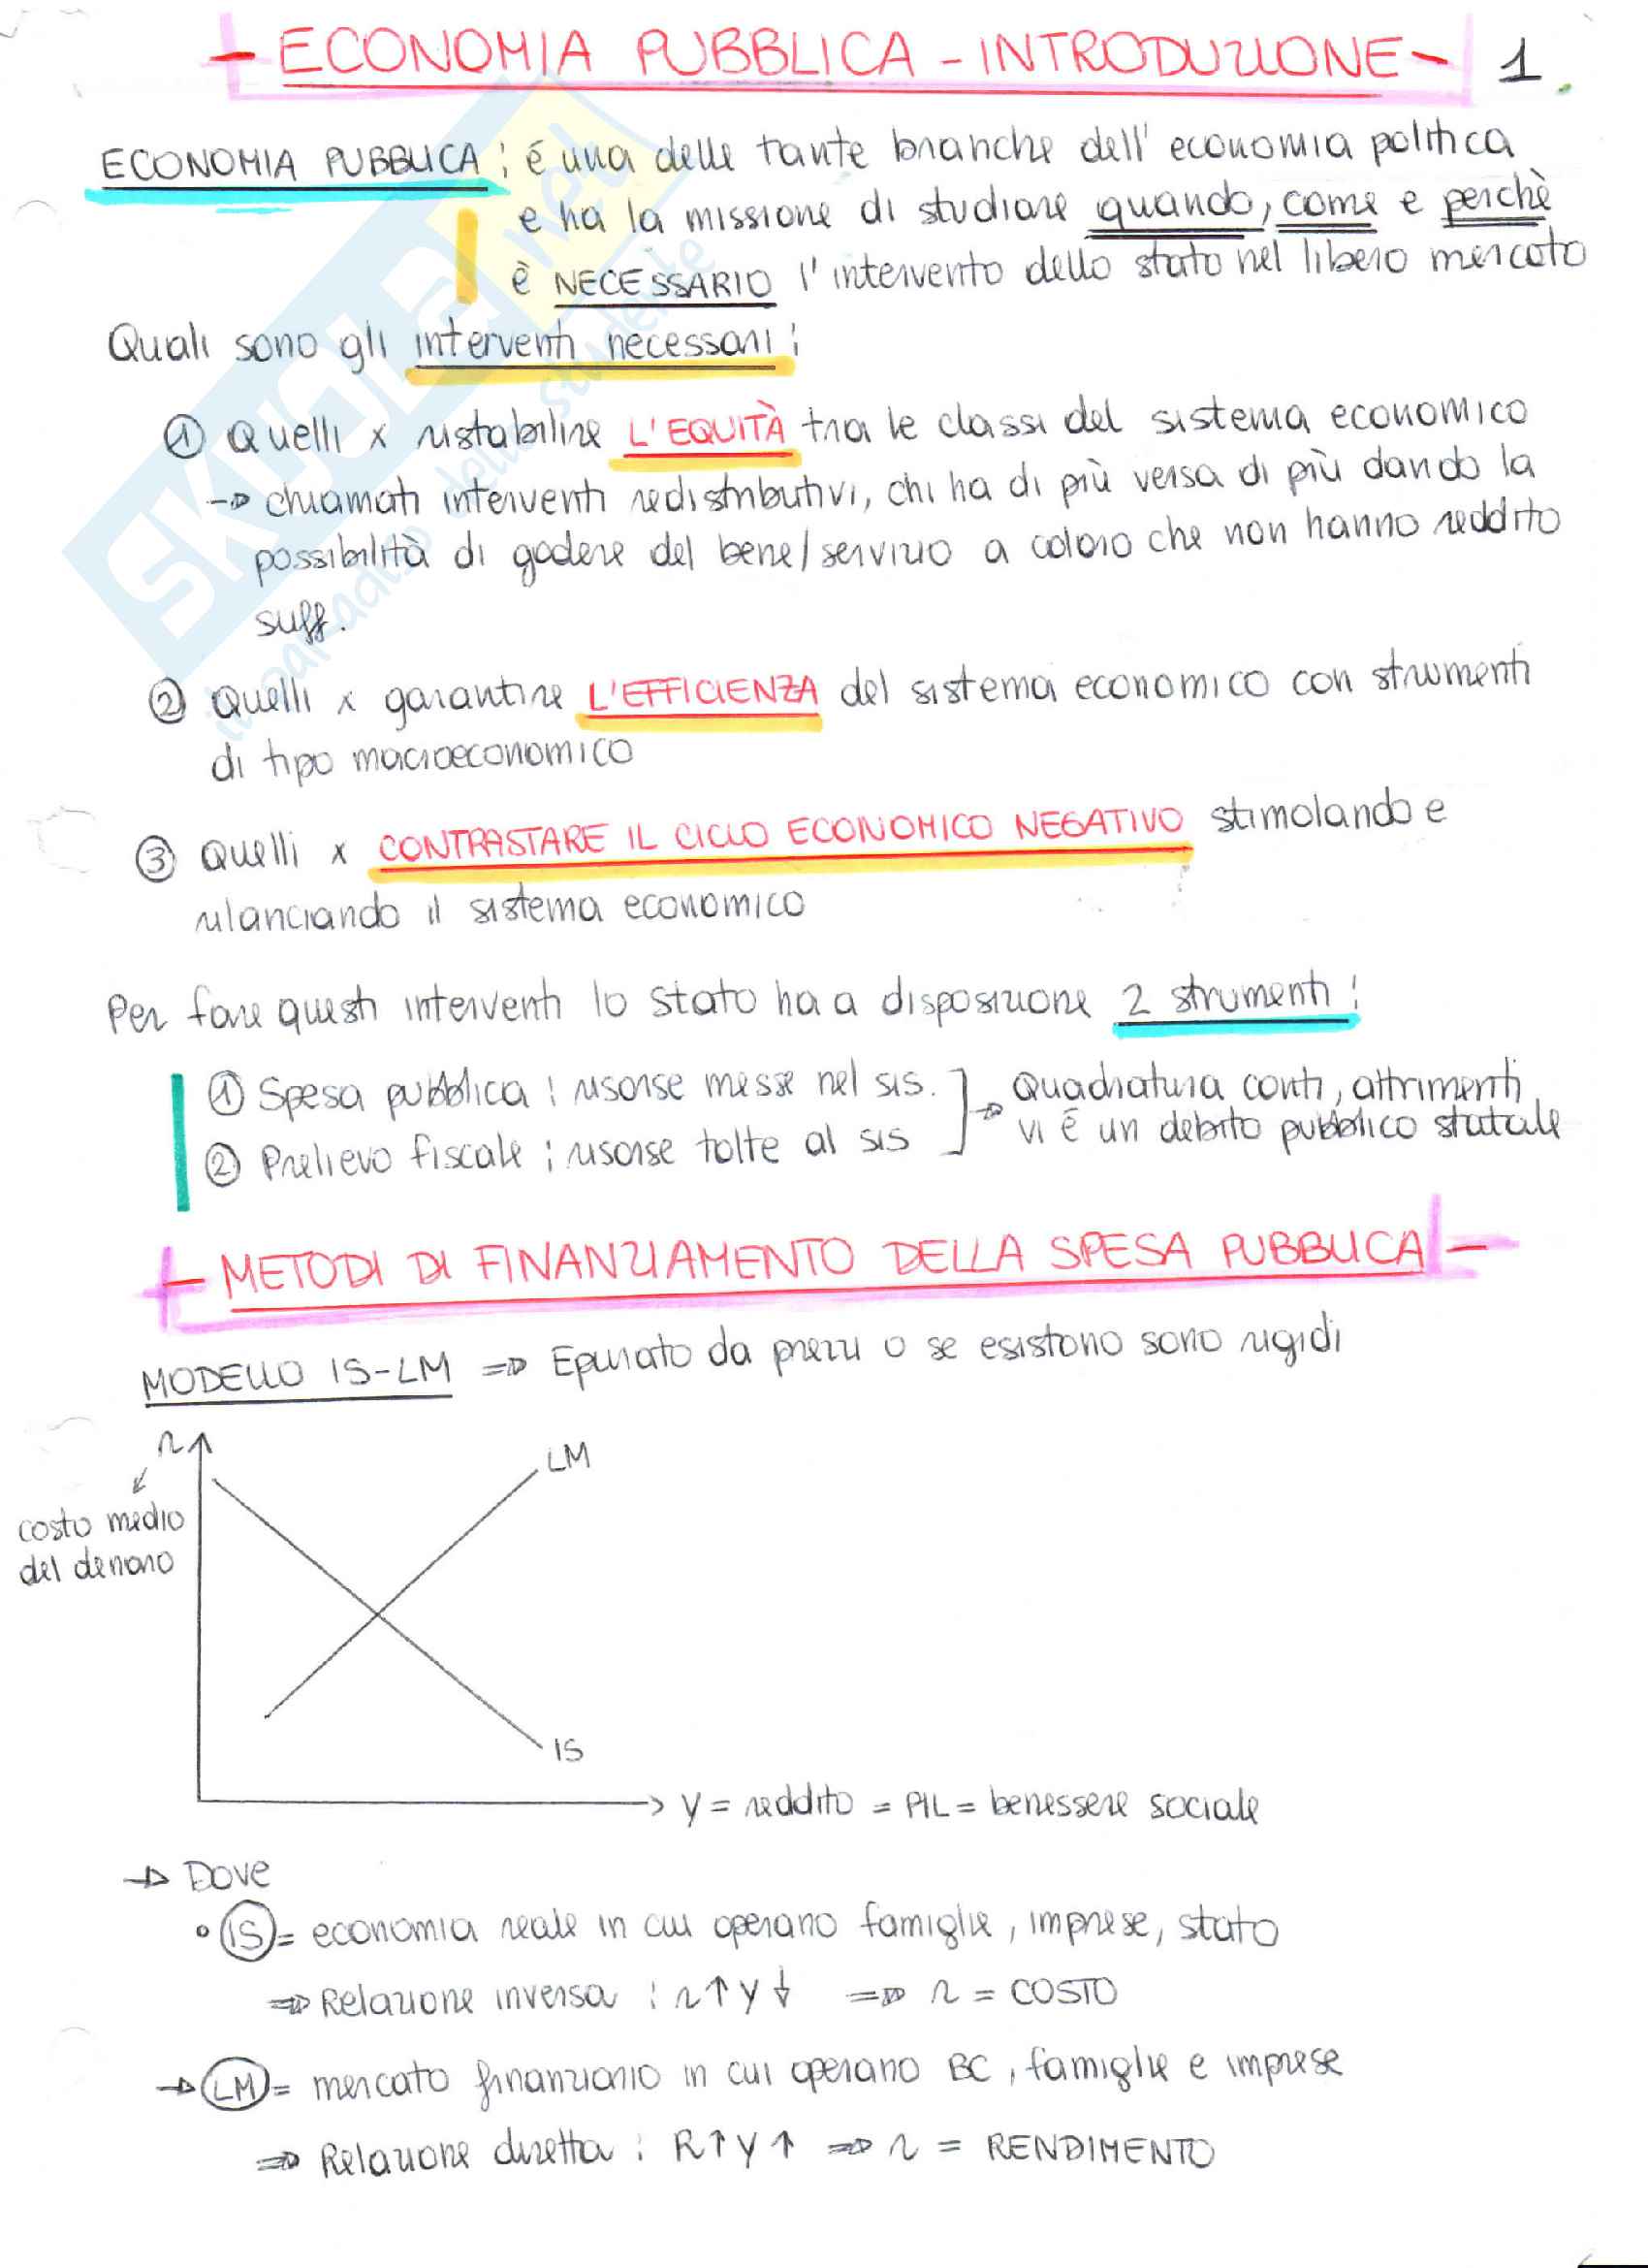 - ECONOMIA PUBBLICA - INTRODUZIONE - 1
ECONOMIA PUBBLICA : é una delle tante branche dell' economia politica
e ha la missione di studiare quando, come e perchè
è NECESSARIO l' intervento dello stato nel libero mercato
Quali sono gli interventi necessari :
① Quelli x ristabilire L'EQUITÀ tra le classi del sistema economico
→ chiamati interventi redistributivi, chi ha di più versa di più dando la
possibilità di godere del bene/servizio a coloro che non hanno reddito
suff.
② Quelli x garantire L'EFFICIENZA del sistema economico con strumenti
di tipo macroeconomico
③ Quelli x CONTRASTARE IL CICLO ECONOMICO NEGATIVO stimolando e
rilanciando il sistema economico
Per fare questi interventi lo stato ha a disposizione 2 strumenti :
① Spesa pubblica : risorse messe nel sis. ] → Quadratura conti, altrimenti
② Prelievo fiscale : risorse tolte al sis vi é un debito pubblico statale
- METODI DI FINANZIAMENTO DELLA SPESA PUBBLICA -
MODELLO IS-LM ⇒ Epurato da prezzi o se esistono sono rigidi
r
LM
costo medio
del denaro
IS
y = reddito = PIL = benessere sociale
→ Dove
• IS = economia reale in cui operano famiglie, imprese, stato
⇒ Relazione inversa : r↑ y↓ ⇒ r = COSTO
→ LM = mercato finanziario in cui operano BC, famiglie e imprese
⇒ Relazione diretta : R↑ y↑ ⇒ r = RENDIMENTO
SKUOLA.net
il paradiso dello studente